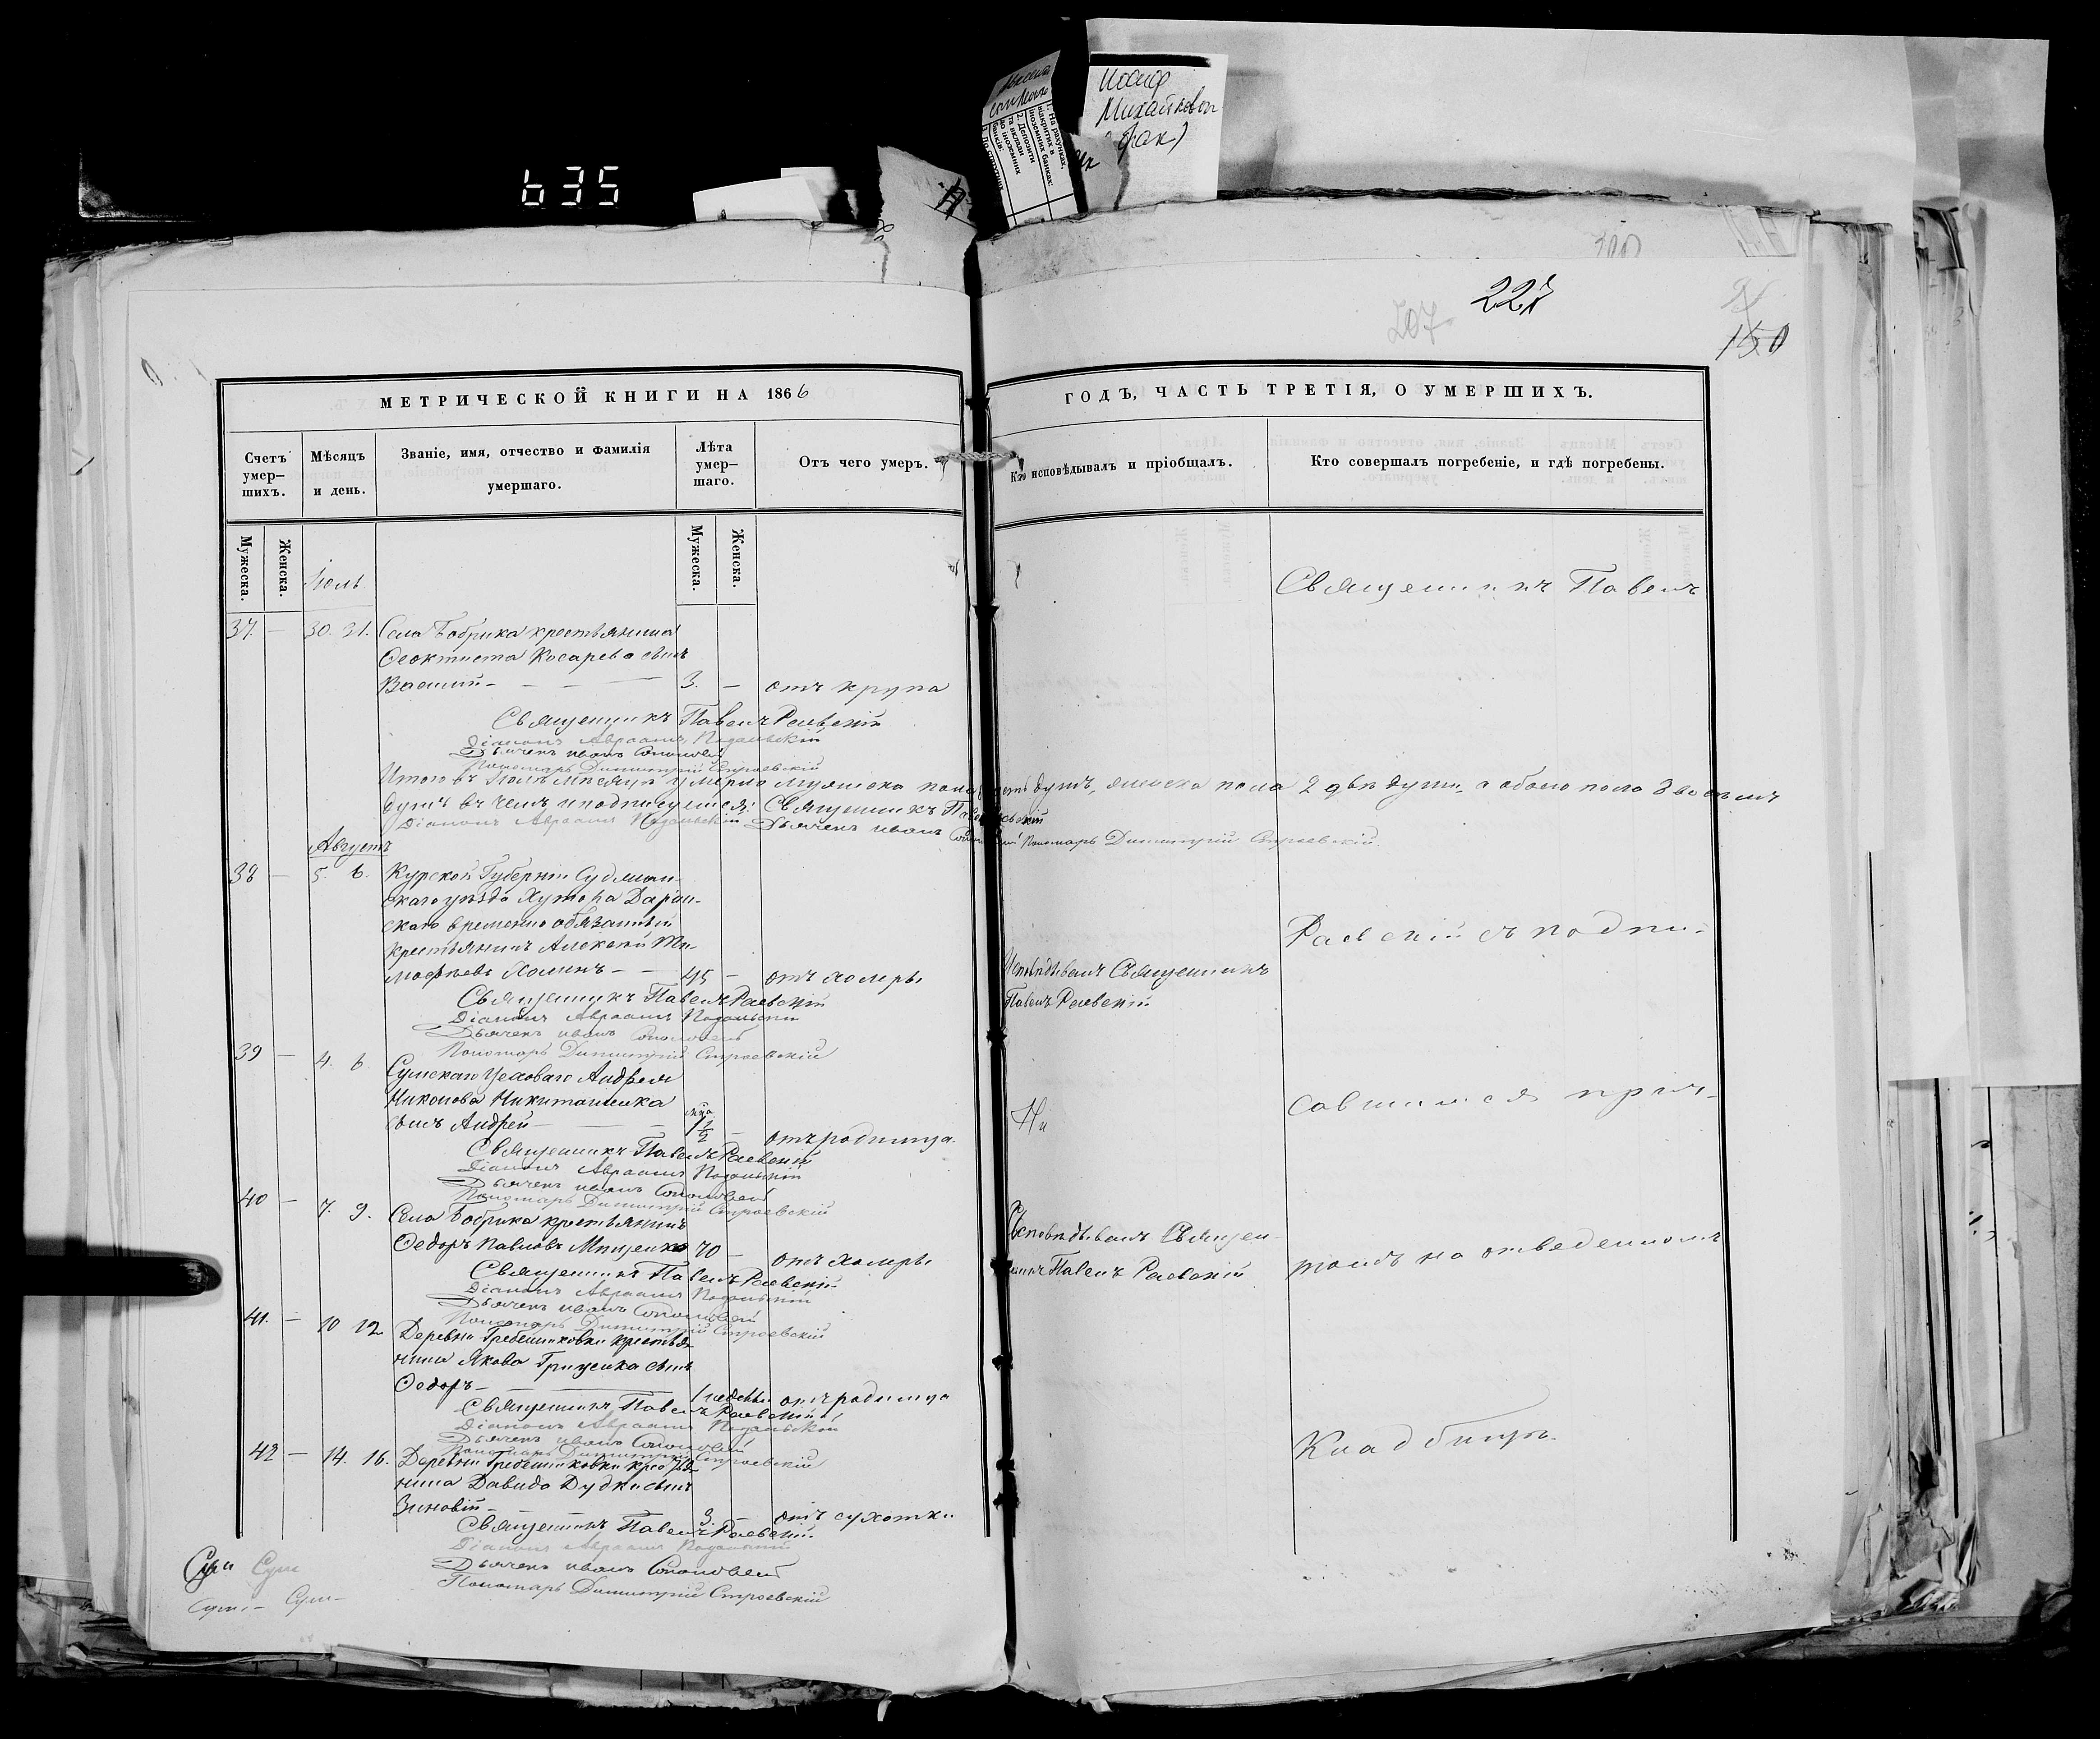 635
Иосиф
Михайлович
227
207
150
МЕТРИЧЕСКОЙ КНИГИ НА 1866
ГОДЪ, ЧАСТЬ ТРЕТІЯ, О УМЕРШИХЪ.
Счетъ умер-шихъ.
Мѣсяцъ и день.
Званіе, имя, отчество и фамилія умершаго.
Лѣта умер-шаго.
Отъ чего умеръ.
Кто исповѣдывалъ и пріобщалъ.
Кто совершалъ погребеніе, и гдѣ погребены.
Мужеска.
Женска.
Мужеска.
Женска.
Іюль.
Священникъ Павелъ
37. — 30. 31. Села Бобрика крестьянина
Феоктиста Косарева сынъ
Василій — 3. — отъ крупа
Священникъ Павелъ Раевскій
Діаконъ Авраамъ Подольскій
Дьячекъ Иванъ
Пономарь Димитрій Строевскій
Итого въ Іюлѣ мѣсяцѣ умерло мужеска пола душъ, женска пола 2 двѣ души, а обоего пола
душъ въ чемъ и подписуемся: Священникъ Павелъ Раевскій
Діаконъ Авраамъ Подольскій Дьячекъ Иванъ Пономарь Димитрій Строевскій.
Августъ
38 — 5. 6. Курской Губерніи Суджан-
скаго уѣзда Хутора Дарьи-
скаго временно обязанный
крестьянинъ Алексѣй Ти-
мофѣевъ — 45 — отъ холеры
Исповѣдывалъ Священникъ
Павелъ Раевскій
Раевскій съ подпи-
Священникъ Павелъ Раевскій
Діаконъ Авраамъ Подольскій
Дьячекъ Иванъ
Пономарь Димитрій Строевскій
39 — 4. 6. Сумскаго Цеховаго Андрея
Никонова Никитошенка
сынъ Андрей — 1/2 — отъ родимца.
савшимся прич-
Священникъ Павелъ Раевскій
Діаконъ Авраамъ Подольскій
Дьячекъ Иванъ
Пономарь Димитрій Строевскій
40 — 7. 9. Села Бобрика крестьянинъ
Федоръ Павловъ Мищенко 70 — отъ холеры
Исповѣдывалъ Священ-
никъ Павелъ Раевскій
томъ на отведенномъ
Священникъ Павелъ Раевскій
Діаконъ Авраамъ Подольскій
Дьячекъ Иванъ
Пономарь Димитрій Строевскій
41. — 10 12 Деревни Гребенниковки крестья-
нина Якова Гриценка сынъ
Федоръ — 1 недѣли отъ родимца
Священникъ Павелъ Раевскій
Діаконъ Авраамъ Подольскій
Дьячекъ Иванъ
Пономарь Димитрій Строевскій
кладбищѣ.
42 — 14. 16. Деревни Гребенниковки крестья-
нина Давида Дудки сынъ
Зиновій — 3. — отъ сухотки
Священникъ Павелъ Раевскій
Діаконъ Авраамъ Подольскій
Дьячекъ Иванъ
Пономарь Димитрій Строевскій
Сум Сум
Сум- Сум-